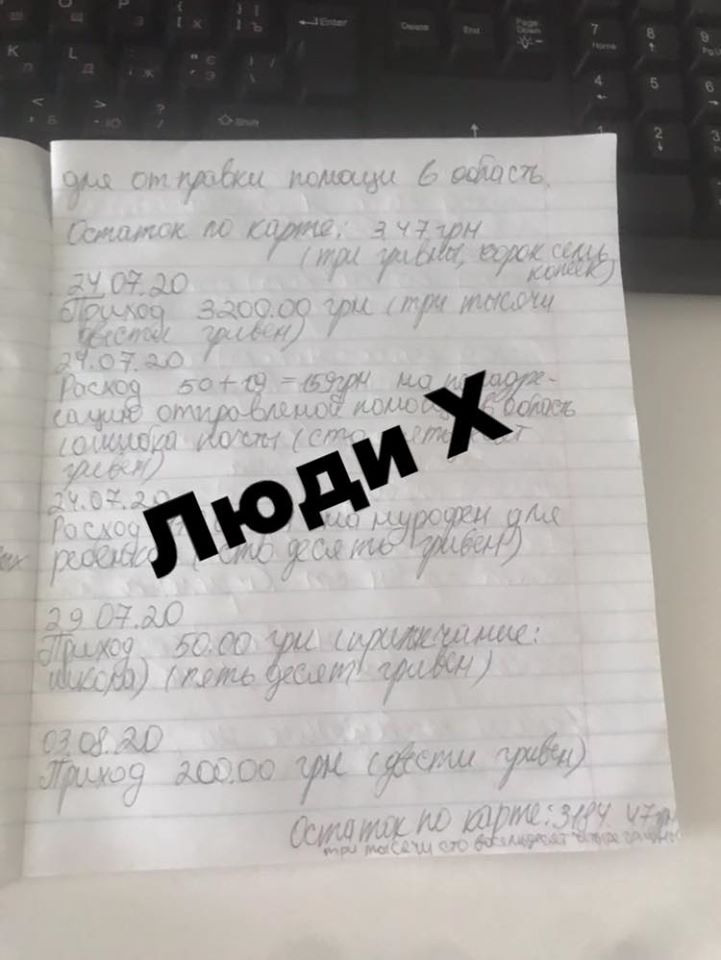 для отправки помощи в область.
Остаток по карте: 3.47 грн
(три гривны, сорок семь
копеек)
24.07.20
Приход 3200.00 грн (три тысячи
двести гривен)
24.07.20
Расход 50+19 = 159грн на
сацию отправленой в область
(ошибка почты (сто
гривен)
24.07.20
Расход на нурофен для
ребенка (сто десять гривен)
29.07.20
Приход 50.00 грн (примечание:
(пять десят гривен)
03.08.20
Приход 200.00 грн (двести гривен)
Остаток по карте: 3184.47грн
три тысячи сто восемьдесят
Люди X
Enter
Delete
End
Page
Down
Shift
7
Home
8
9
4
5
6
1
2
3